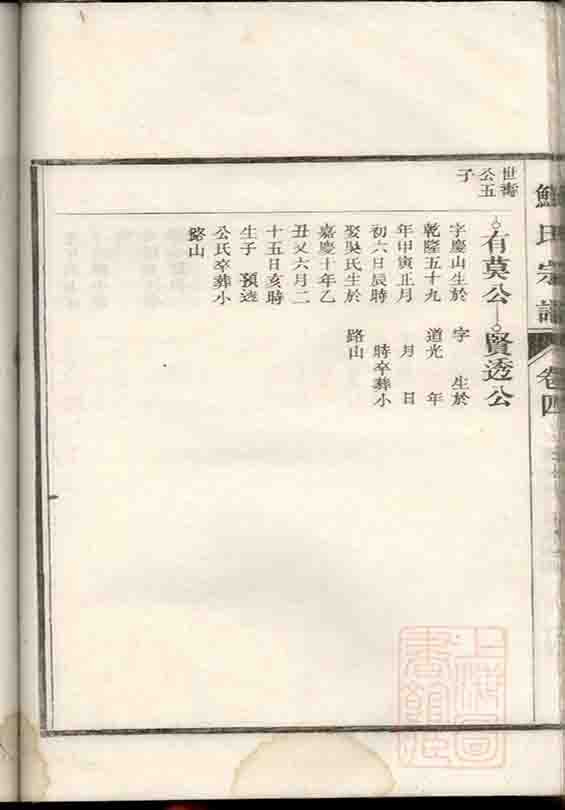 氏宗譜
卷四
世壽
公五
子
有莫公
字慶山生於
乾隆五十九
年甲寅正月
初六日辰時
娶吳氏生於
嘉慶十年乙
丑又六月二
十五日亥時
生子 透
公氏卒葬小
路山
賢透公
字 生於
道光 年
月 日
時卒葬小
路山
上海圖
書館藏